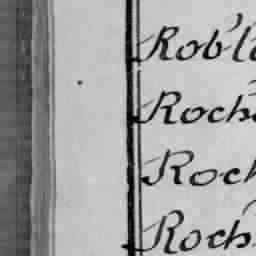 Rob'l
Roch
Roch
Roch